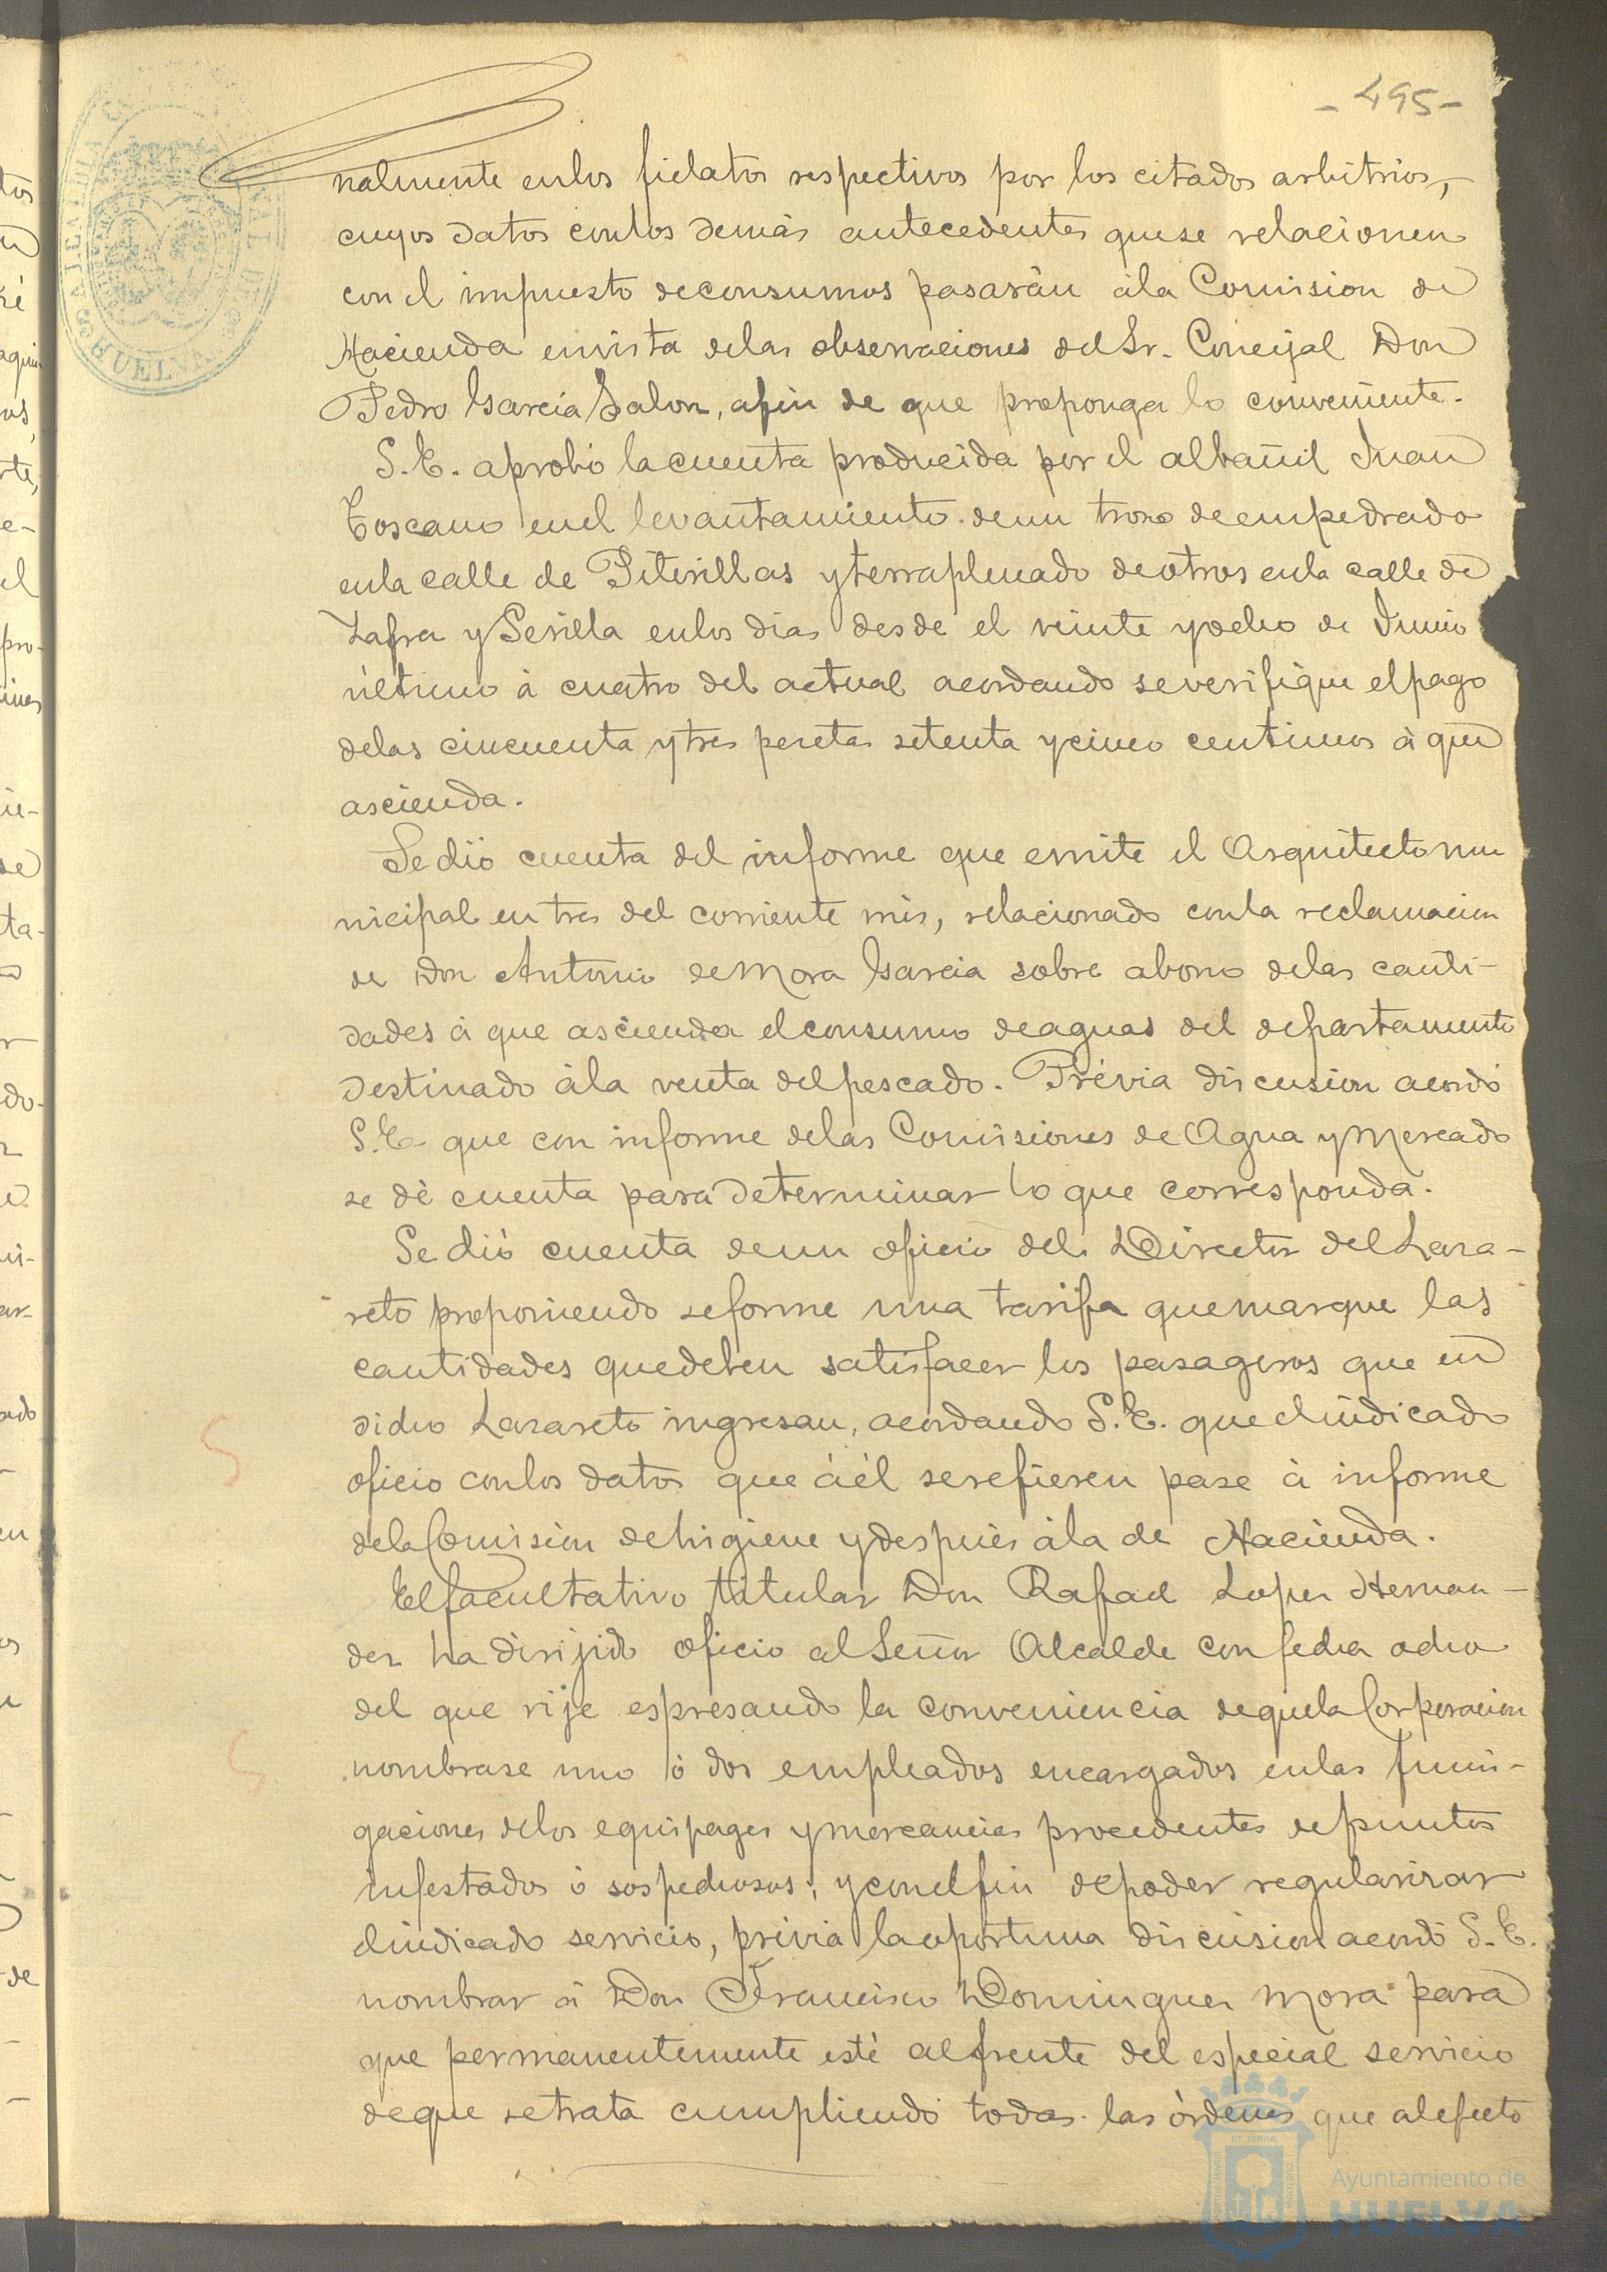 - 495 -
nalmente en los fielatos respectivos por los citados arbitrios,
cuyos datos con los demás antecedentes que se relacionen
con el impuesto de consumos pasarán á la Comision de
Hacienda en vista de las observaciones del Sr. Concejal Don
Pedro Garcia Jalon, afin de que proponga lo conveniente.
S. E. aprobó la cuenta producida por el albañil Juan
Toscano en el levantamiento de un trozo de empedrado
en la calle de Piterillas y terraplenado de otros en la calle de
Zafra y Sevilla en los dias desde el veinte y ocho de Junio
último á cuatro del actual acordando se verifique el pago
de las cincuenta y tres pesetas setenta y cinco centimos á que
ascienda.
Se dió cuenta del informe que emite el Arquitecto mu
nicipal en tres del corriente mes, relacionado con la reclamacion
de Don Antonio de Mora Garcia sobre abono de las canti-
dades á que ascienda el consumo de aguas del departamento
destinado á la venta del pescado. Prévia discusion acordó
S. E. que con informe de las Comisiones de Agua y Mercado
se dé cuenta para determinar lo que corresponda.
Se dió cuenta de un oficio del Director del Laza-
reto proponiendo se forme una tarifa que marque las
cantidades que deben satisfacer los pasageros que en
dicho Lazareto ingresan, acordando S. E. que el indicado
oficio con los datos que á él se refieren pase á informe
de la Comision de higiene y despues á la de Hacienda.
El facultativo titular Don Rafael Lopez Hernan-
dez ha dirijido oficio al Señor Alcalde con fecha ocho
del que rije espresando la conveniencia de que la Corporacion
nombrase uno ó dos empleados encargados en las fumi-
gaciones de los equipages y mercancias procedentes de puntos
infestados ó sospechosos; y con el fin de poder regularizar
el indicado servicio, prévia la oportuna discusion acordó S. E.
nombrar á Don Francisco Dominguez Mora para
que permanentemente esté al frente del especial servicio
de que se trata cumpliendo todas las órdenes que al efecto
ALCALDIA
HUELVA
Ayuntamiento de
HUELVA